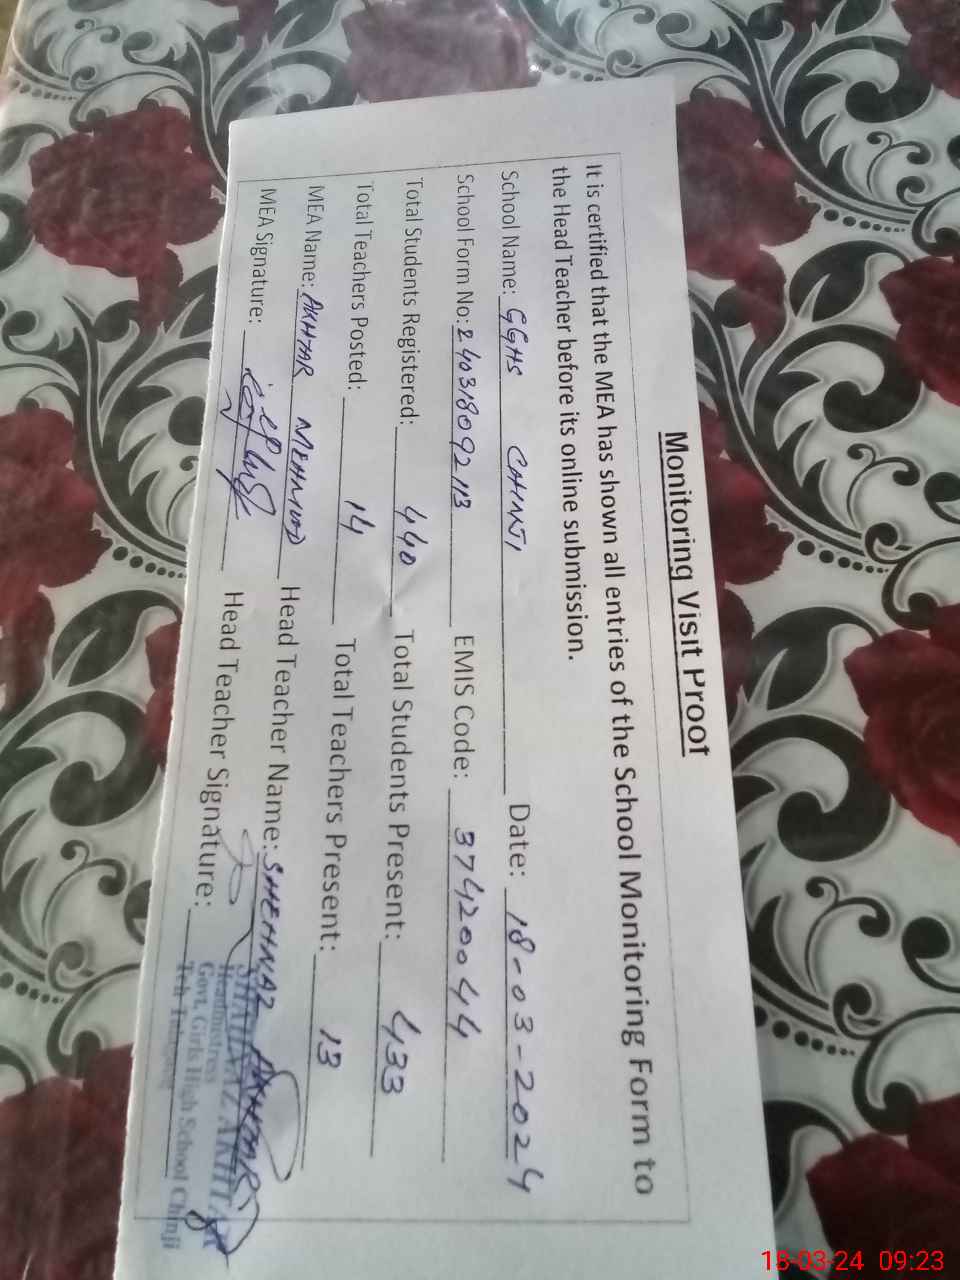 Monitoring Visit Proof
It is certified that the MEA has shown all entries of the School Monitoring Form to
the Head Teacher before its online submission.
School Name: GGHS CHINJI Date: 18-03-2024
School Form No: 240318092113 EMIS Code: 37420044
Total Students Registered: 440 Total Students Present: 433
Total Teachers Posted: 14 Total Teachers Present: 13
MEA Name: AKHTAR MEHMOOD Head Teacher Name: SHEHNAZ AKHTAR
MEA Signature: Head Teacher Signature:
SHAHNAZ AKHTAR
Headmistress
Govt. Girls High School Chinji
Teh
18-03-24 09:23